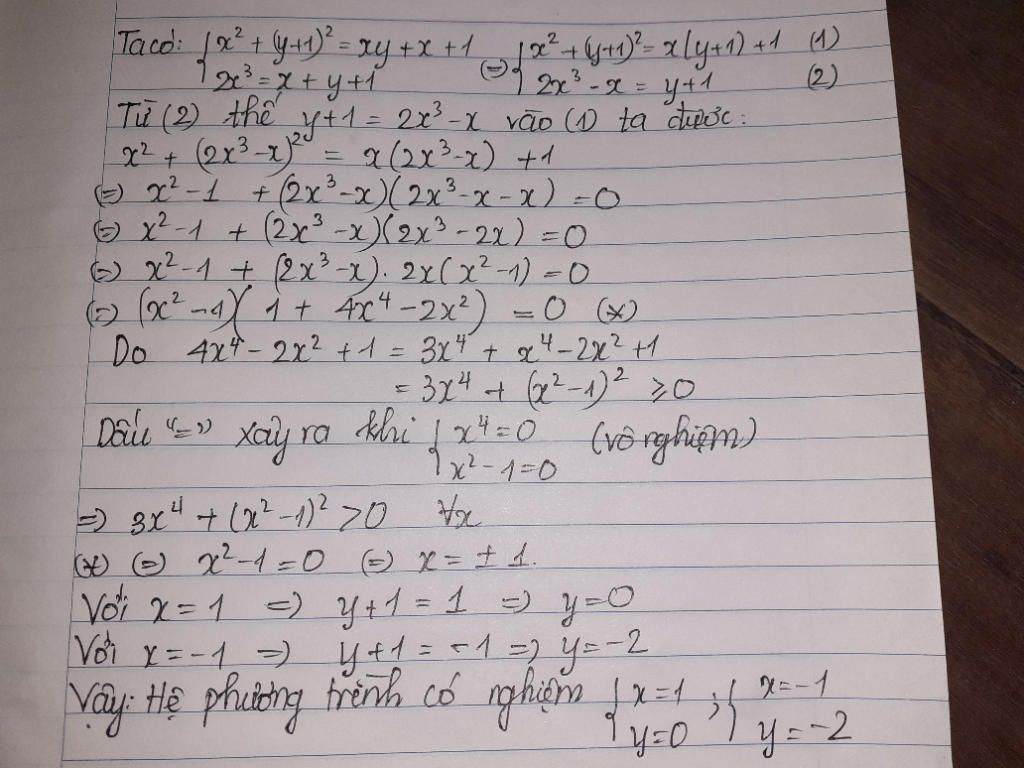 Ta có: { x² + (y+1)² = xy + x + 1 (=) { x² + (y+1)² = x(y+1) + 1 (1)
2x³ = x + y + 1 2x³ - x = y+1 (2)
Từ (2) thế y+1 = 2x³ - x vào (1) ta được:
x² + (2x³ - x)² = x(2x³ - x) + 1
(=) x² - 1 + (2x³ - x)(2x³ - x - x) = 0
(=) x² - 1 + (2x³ - x)(2x³ - 2x) = 0
(=) x² - 1 + (2x³ - x). 2x(x² - 1) = 0
(=) (x² - 1)(1 + 4x⁴ - 2x²) = 0 (*)
Do 4x⁴ - 2x² + 1 = 3x⁴ + x⁴ - 2x² + 1
= 3x⁴ + (x² - 1)² ≥ 0
Dấu "=" xảy ra khi { x⁴ = 0 (vô nghiệm)
x² - 1 = 0
=) 3x⁴ + (x² - 1)² > 0 ∀x
(*) (=) x² - 1 = 0 (=) x = ± 1.
Với x = 1 =) y+1 = 1 =) y = 0
Với x = -1 =) y+1 = -1 =) y = -2
Vậy: Hệ phương trình có nghiệm { x = 1 ; { x = -1
y = 0 y = -2